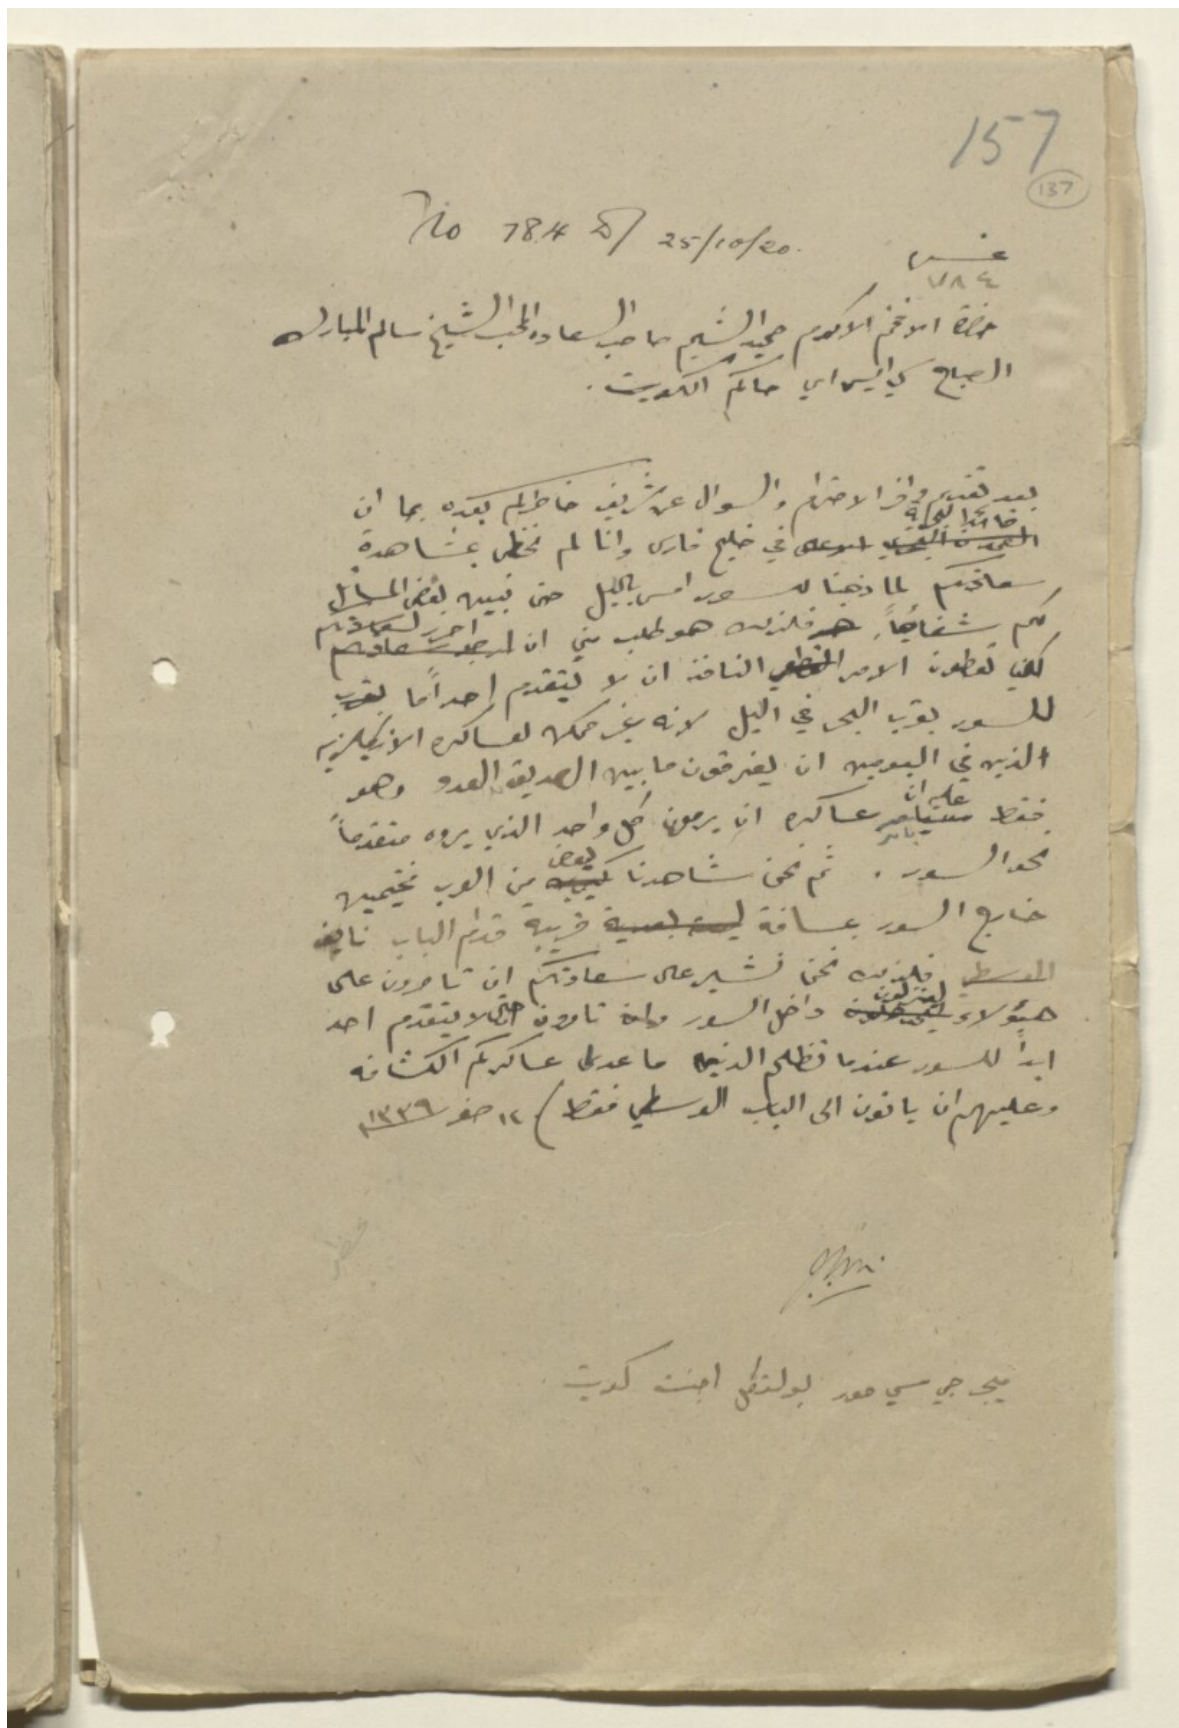 157
137
No 784 d/ 25/10/20.
نمبر
٧٨٤
حضرة الافخم الاكرم حميد الشيم صاحب السعاده المحب الشيخ سالم المبارك
الصباح سي ايس اي حاكم الكويت .
بعد تقديم وافر الاحترام والسوال عن شريف خاطركم بعده بما ان
قائد البحرية
في خليج فارس وانا لم نحظى بمشاهدة
سعادتكم لما ذهبنا للسور امس بالليل حتى نبين بعض المسائل
لكم شفاهاً. فلذلك هو طلب مني ان احرر لسعادتكم
لكي تعطون الامر النافذ ان لا يتقدم احداً ما
للسور بقرب البحر في الليل لانه غير ممكن لعساكره الانكليزيه
الذين في البومين ان يفرقون ما بين الصديق العدو وهو
فقط عليه ان يامر عساكره ان يرمون كل واحد الذي يروه متقدماً
نحو السور . ثم نحن شاهدنا بعض من العرب مخيمين
خارج السور بمسافة قريبه قدام الباب نايف
فلذلك نحن نشير على سعادتكم ان تامرون على
هؤلاء لينزلون داخل السور تامرون لا يتقدم احد
ابداً للسور عندما تظلم الدنيا ما عدى عساكركم الكشافه
وعليهم ان ياتون الى الباب الوسطي فقط) ١٢ صفر ١٣٣٩
ميجر جي سي مور بولتكل اجنت كويت